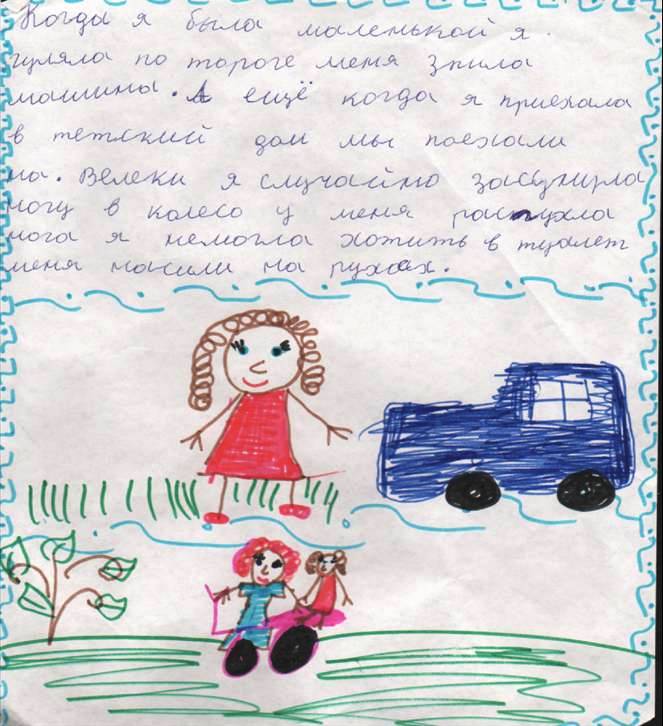 Когда я была маленькой я.
гуляла по тороге меня зпила
машина. А ещё когда я приехала
в тетский дом мы поехали
на. Велеки я случайно засунула
ногу в колесо у меня распухла
нога я немогла хотить в туалет
меня насили на руках.